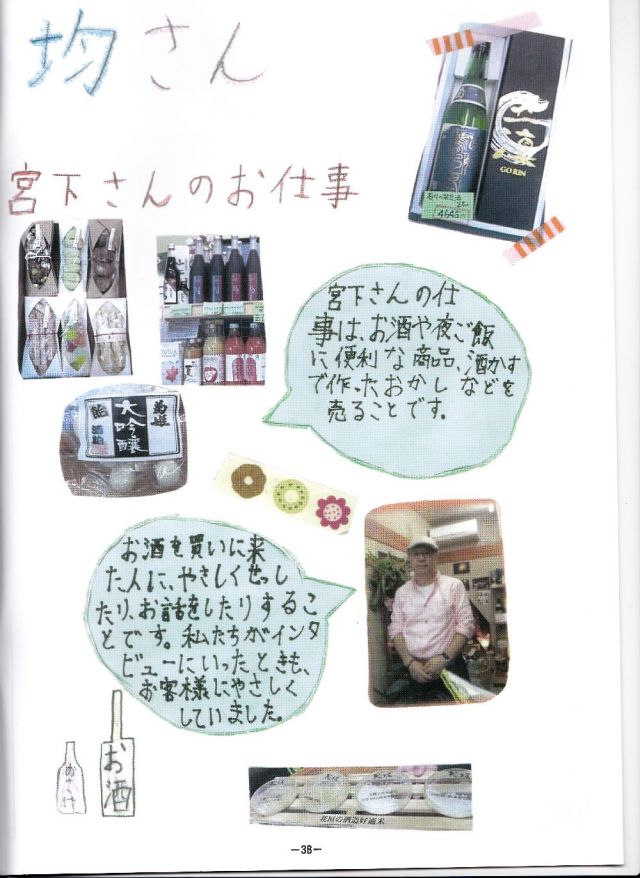 均さん
宮下さんのお仕事
五凜
GORIN
4645
宮下さんの仕
事は、お酒や夜ご飯
に便利な商品、酒かす
で作ったおかしなどを
売ることです。
菊姫
大吟醸
飴
酒粕
お酒を買いに来
た人に、やさしくせっし
たり、お話をしたりするこ
とです。私たちがインタ
ビューにいったときも、
お客様にやさしく
していました。
おさけ
お酒
花垣の酒造好適米
-38-